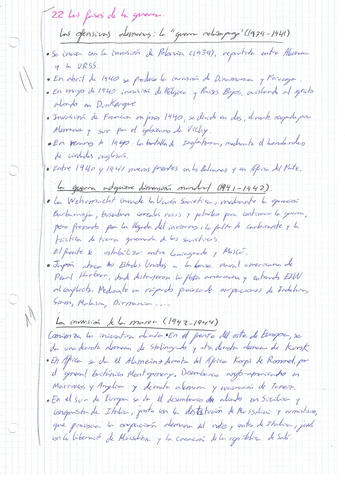 2.2 Las fases de la guerra.
Las ofensivas alemanas: la "guerra relámpago" (1939-1941)
• Se inicia con la invasión de Polonia (1939), repartida entre Alemania
y la URSS.
• En abril de 1940 se produce la invasión de Dinamarca y Noruega.
• En mayo de 1940 invasión de Bélgica y Países Bajos, aislando al ejército
aliado en Dunkerque
• Invasión de Francia en junio 1940, se divide en dos, durante ocupada por
Alemania y sur por el gobierno de Vichy.
• En verano de 1940 la batalla de Inglaterra, mediante el bombardeo
de ciudades inglesas.
• Entre 1940 y 1941 nuevos frentes en los Balcanes y en África del Norte.
La guerra adquiere dimensión mundial (1941-1942).
• La Wehrmacht invade la Unión Soviética, mediante la operación
Barbarroja, buscaban cereales rusos y petróleo para continuar la guerra,
pero frenado por la llegada del invierno, la falta de carburante y la
táctica de tierra quemada de los soviéticos.
El frente se estabiliza entre Leningrado y Moscú.
• Japón ataca los Estados Unidos a la base naval americana de
Pearl Harbour, donde destruyeron la flota americana y entrando EEUU
al conflicto. Mediante un rápido proceso de ocupaciones de Indochina,
Malasia, Birmania....
La inversión de la marea (1942-1944)
Comienza la iniciativa aliada. • En el frente del este de Europa, se
da una derrota alemana de Stalingrado y otra derrota alemana de Kursk.
• En África se da El Alamein derrota del África Korps de Rommel por
el general británico Montgomery. Desembarco anglo-americano en
Marruecos y Argelia y derrota alemana y evacuación de Túnez.
• En el sur de Europa se da el desembarco de aliado en Sicilia y
conquista de Italia, junto con la destitución de Mussolini y armisticio,
que provoca la ocupación alemana del norte, centro de Italia, junto
con la liberació de Mussolini y la creación de la república de Saló.